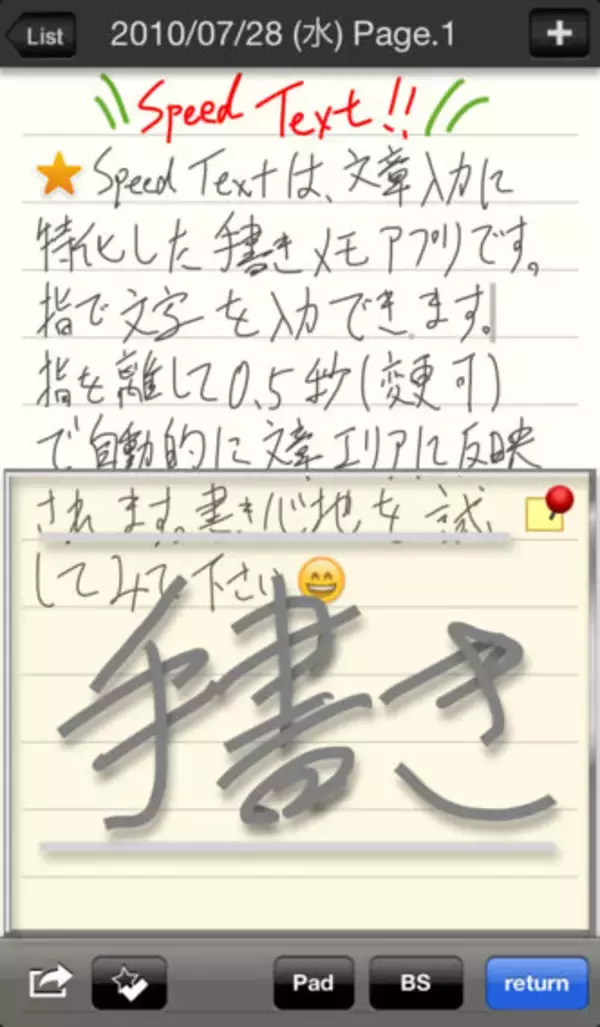 List 2010/07/28 (水) Page.1 +
Speed Text!!
Speed Textは、文章入力に
特化した手書きメモアプリです。
指で文字を入力できます。
指を離して0.5秒(変更可)
で自動的に文章エリアに反映
されます。書き心地を試
してみて下さい
手書き
Pad BS return